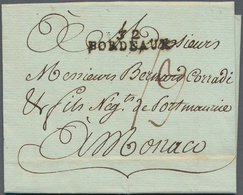 A Messieurs
32
BORDEAUX
Messieurs Bernard Corradi
& fils Negts. de Portmaurice
A Monaco